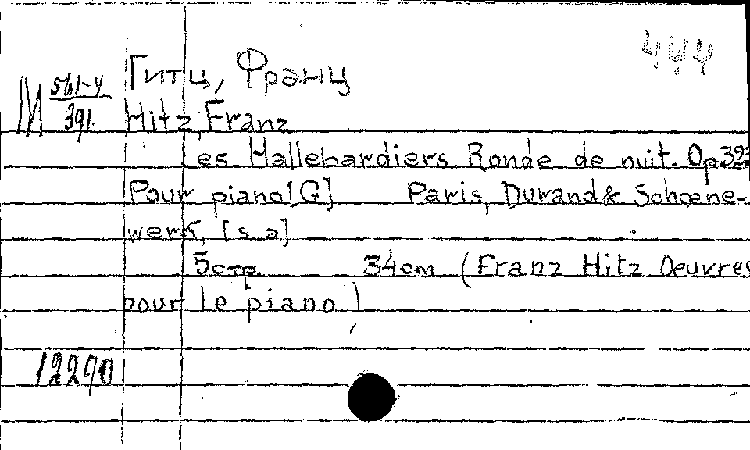 444
Гитц, Франц
М 561-4/391
Hitz, Franz
Les Hallebardiers Ronde de nuit. Op 323
Pour piano [G] Paris, Durand & Schœne-
werk, [s a]
5 стр. 34 cm (Franz Hitz Oeuvres
pour le piano)
12290